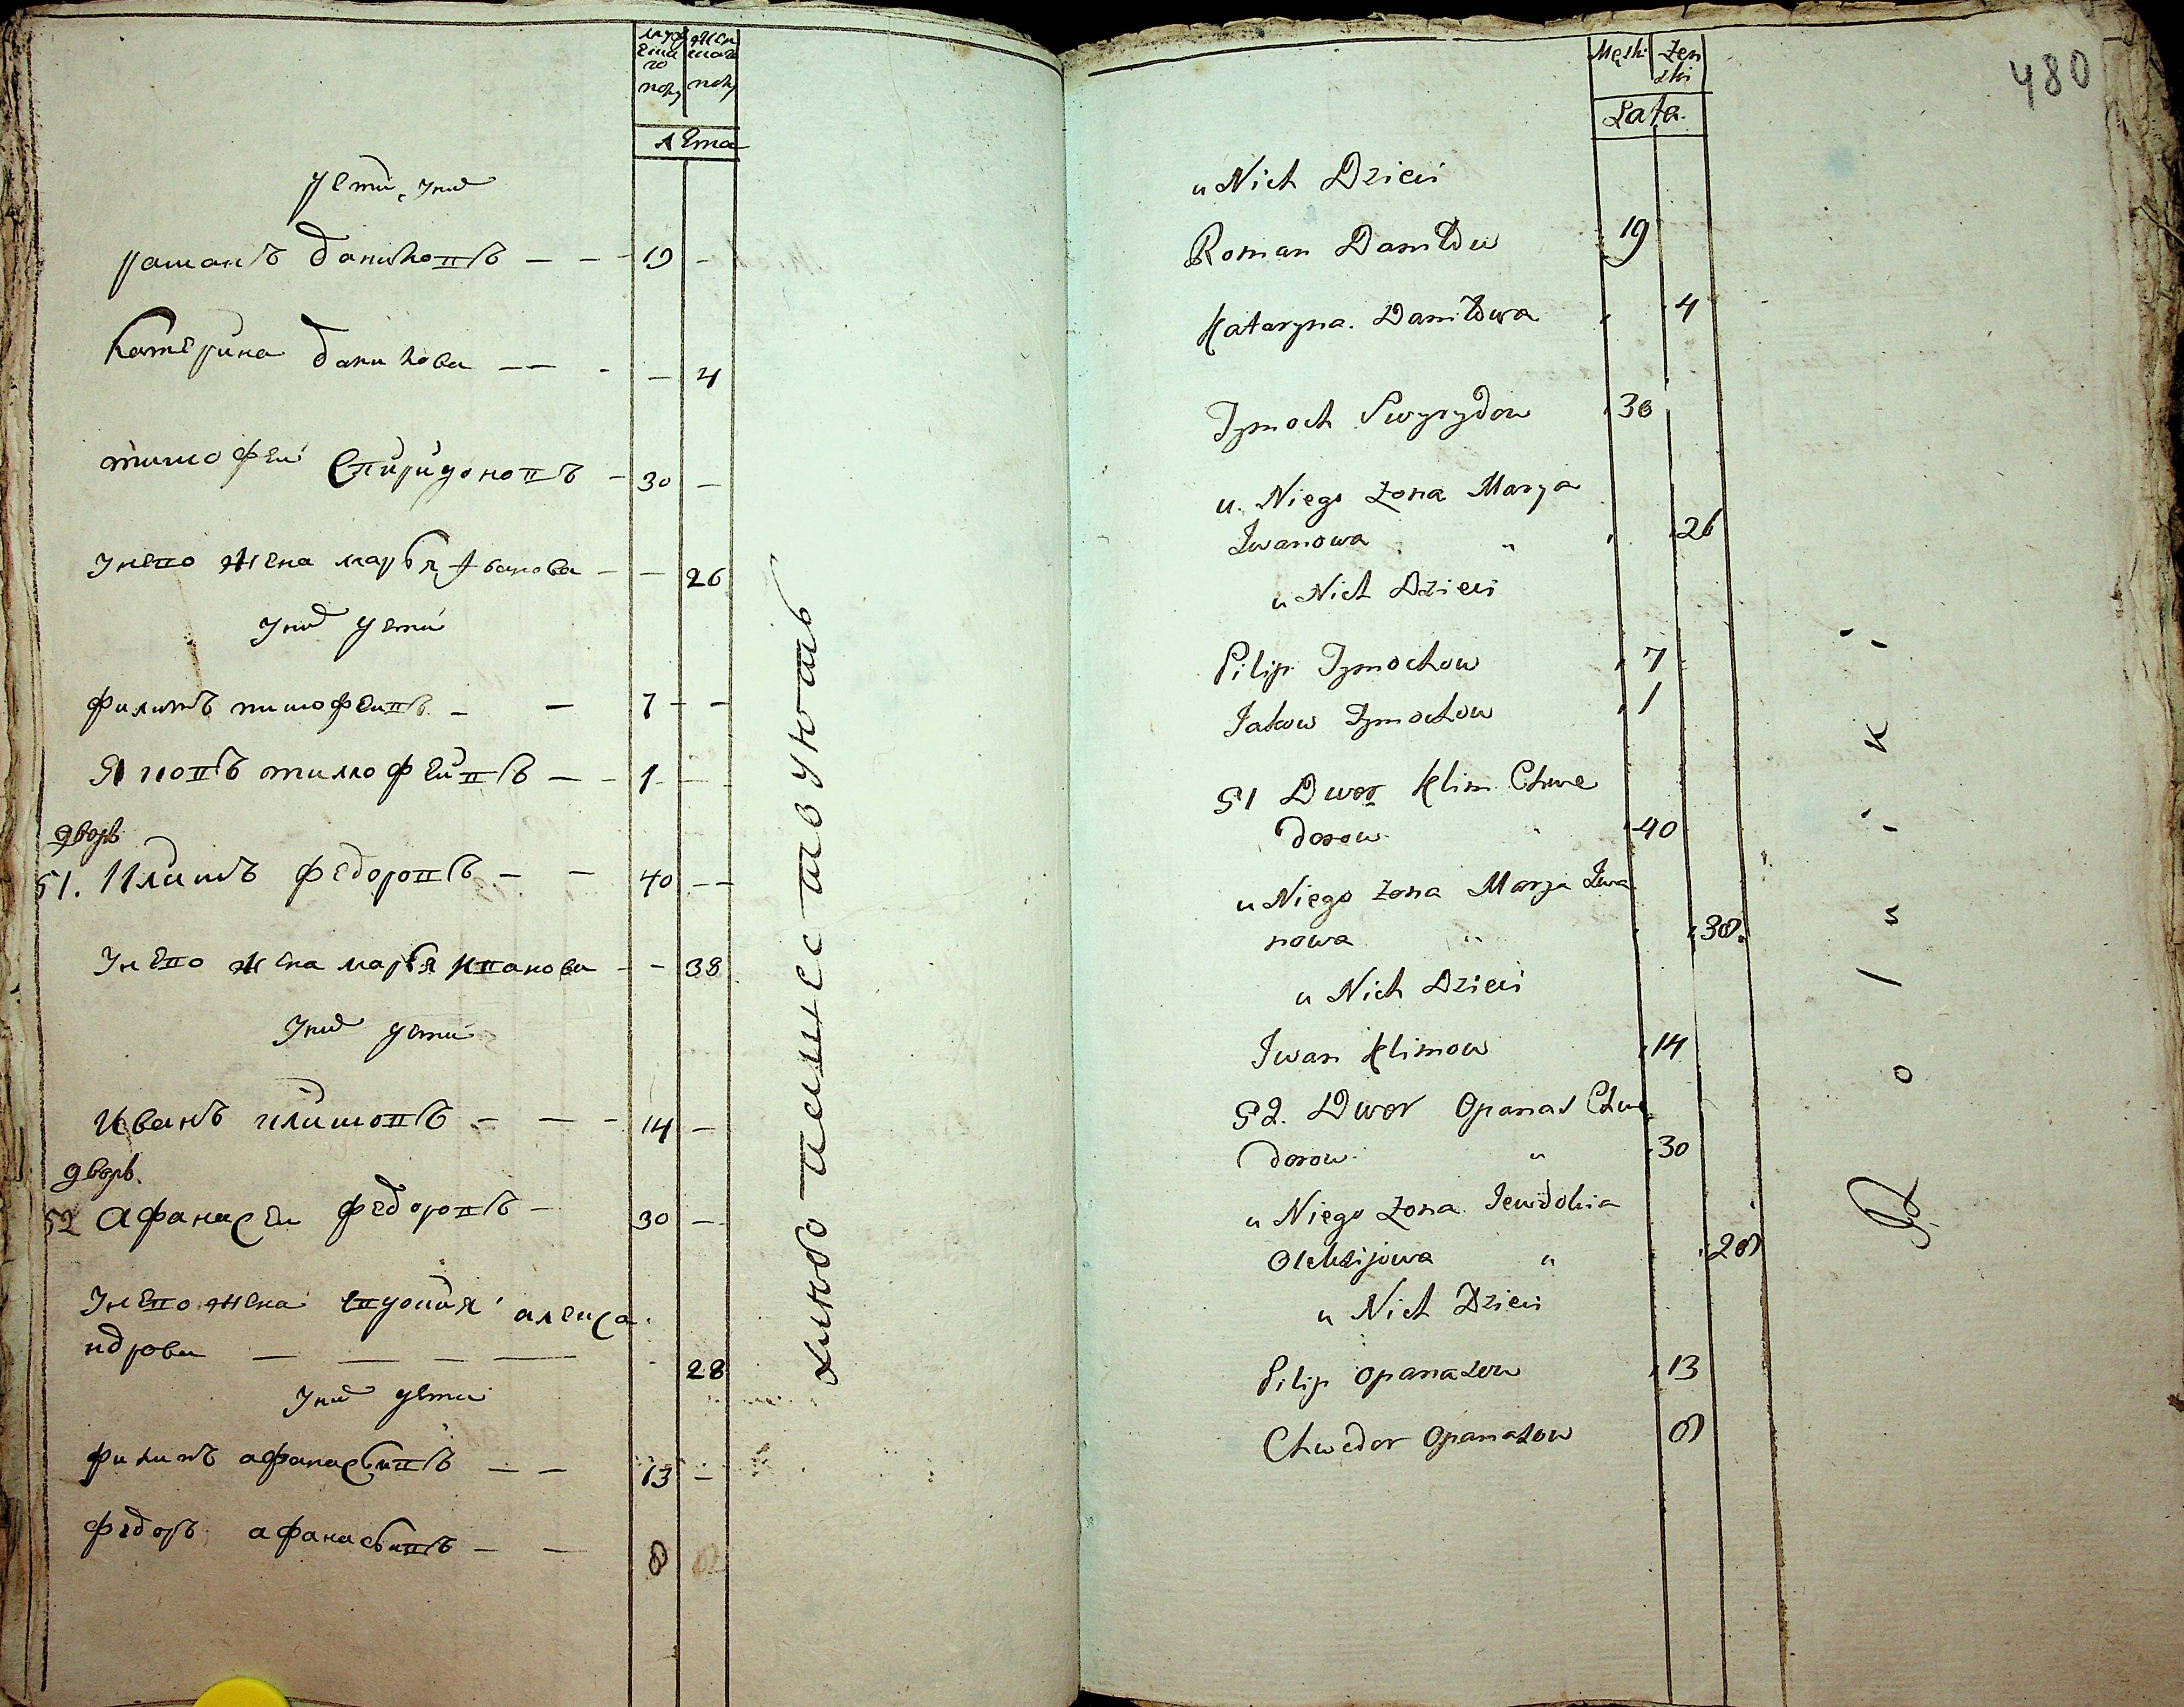 мужеска
го
полу
женскаго
полу
лета
дети, у нихъ
романъ даниловъ — — 19 —
Катерина данилова — — — 4
тимофей Спиридоновъ — 30 —
у нево жена марья Іванова — — 26
у нихъ дети
филипъ тимофеивъ — — 7 — —
Яковъ тимофеивъ — — 1 —
дворъ
51. Климъ федоровъ — — 40 — —
у нево жена марья Иванова — — 38
у нихъ дети
Иванъ климовъ — — — 14 —
дворъ
52 Афанасеи федоровъ — 30 —
у нево жена евдокия алекса
ндрова — — — — 28
у нихъ дети
филипъ афанасьивъ — — 13 —
федоръ афанасьивъ — — 8
Męski Żen
ski
Lata.
480
u Nich Dzieci
Roman Daniłow 19
Kataryna Daniłowa 4
Tymoch Swyrydow 30
u Niego Żona Marya
Iwanowa " 26
u Nich Dzieci
Pilip Tymochow 7
Jakow Tymochow 1
51 Dwor Klim Chwe
dorow 40
u Niego Żona Marya Iwa
nowa " 38.
u Nich Dzieci
Iwan Klimow 14
52. Dwor Opanas Chwe
dorow " 30
u Niego Żona Jewdokia
Oleksijowa " 28
u Nich Dzieci
Pilip Opanasow 13
Chwedor Opanasow 8